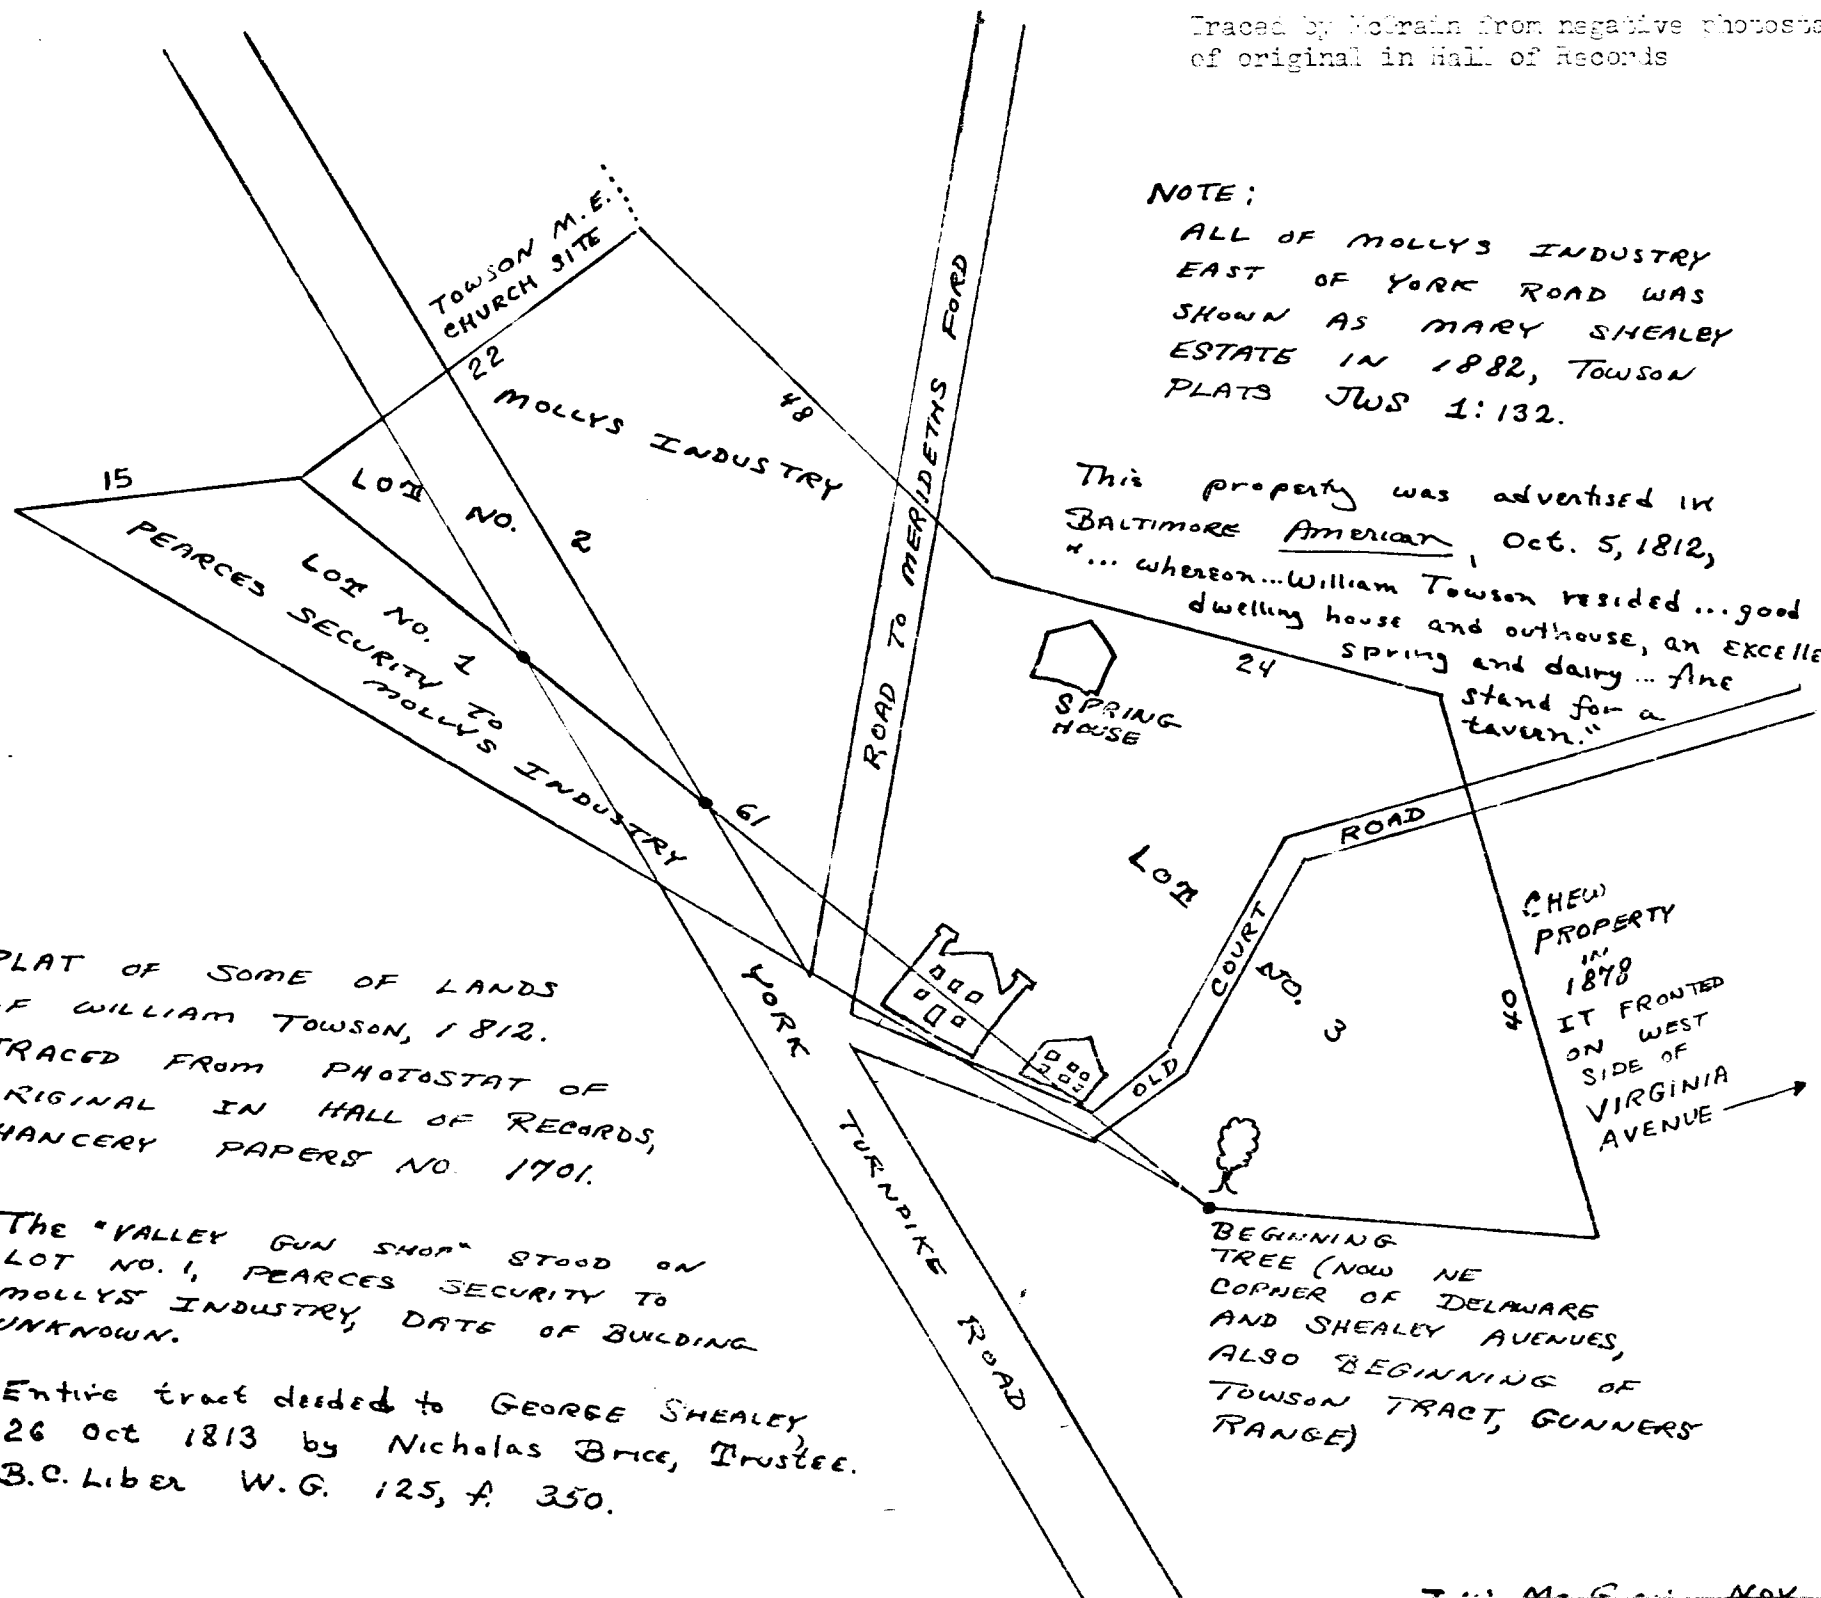 Traced by McGrain from negative photosta
of original in Hall of Records
NOTE:
ALL OF MOLLYS INDUSTRY
EAST OF YORK ROAD WAS
SHOWN AS MARY SHEALEY
ESTATE IN 1882, TOWSON
PLATS JWS 1:132.
This property was advertised in
BALTIMORE American, Oct. 5, 1812,
"... whereon... William Towson resided ... good
dwelling house and outhouse, an EXCELLE
spring and dairy ... fine
stand for a
tavern."
TOWSON M.E.
CHURCH SITE
22
48
MOLLYS INDUSTRY
15
LOT NO. 2
LOT NO. 1
PEARCES SECURITY TO
MOLLYS INDUSTRY
61
ROAD TO MERIDETHS FORD
SPRING
HOUSE
24
LOT
NO. 3
OLD COURT ROAD
40
CHEW
PROPERTY
IN
1878
IT FRONTED
ON WEST
SIDE OF
VIRGINIA
AVENUE
YORK TURNPIKE ROAD
PLAT OF SOME OF LANDS
F WILLIAM TOWSON, 1812.
TRACED FROM PHOTOSTAT OF
RIGINAL IN HALL OF RECORDS,
HANCERY PAPERS NO. 1701.
The "VALLEY GUN SHOP" STOOD ON
LOT NO. 1, PEARCES SECURITY TO
MOLLYS INDUSTRY, DATE OF BUILDING
UNKNOWN.
Entire tract deeded to GEORGE SHEALEY,
26 Oct 1813 by Nicholas Brice, Trustee.
B.C. Liber W.G. 125, f. 350.
BEGINNING
TREE (NOW NE
CORNER OF DELAWARE
AND SHEALEY AVENUES,
ALSO BEGINNING OF
TOWSON TRACT, GUNNERS
RANGE)